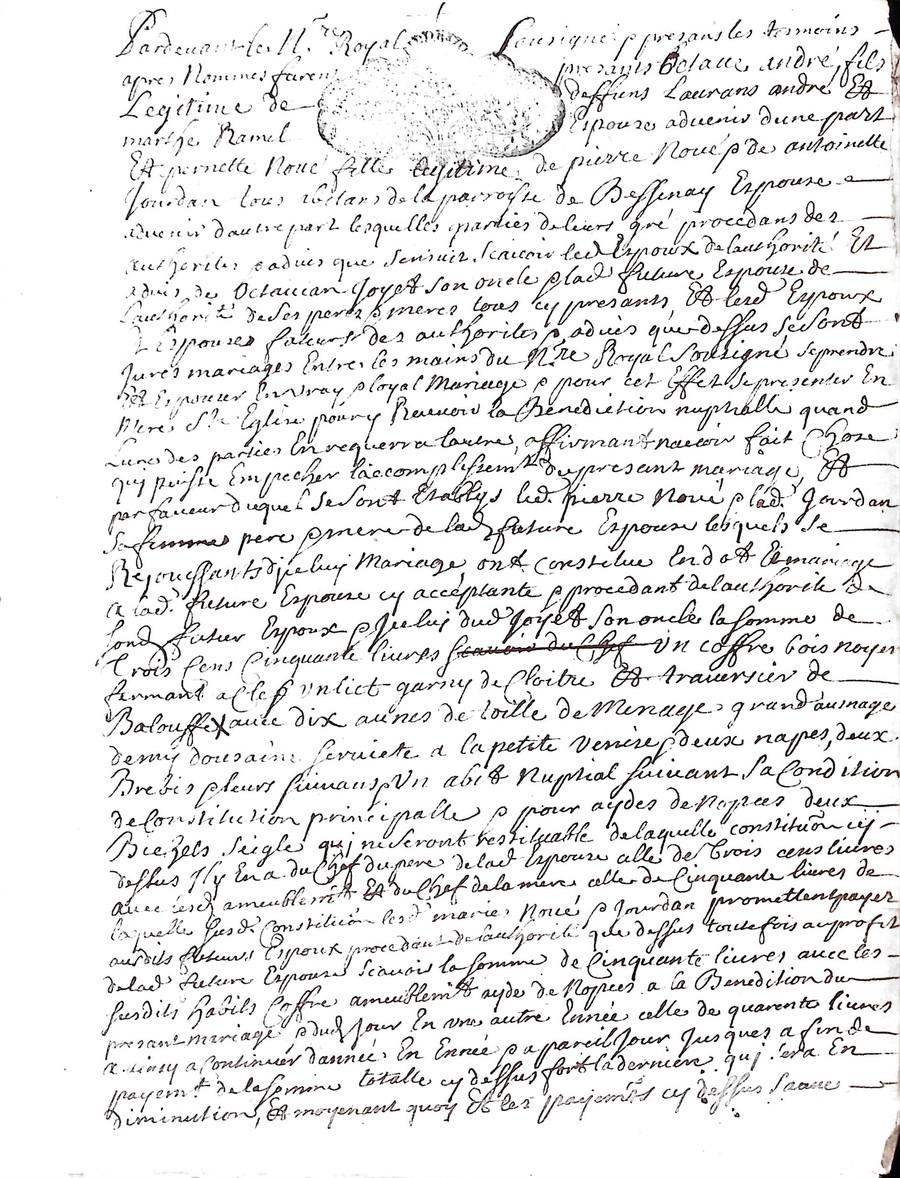 Pardevant le N.re Royal Sousigné p presans les tesmoins
apres Nommes furent presants Octave andré, fils
Legitime de deffuns Laurans andré Et
marthe Ramel Espoux advenir dune part
Et pernette Noué fille legitime, de pierre Noué p de antoinette
Jourdan tous abitans de la parroisse de Bessenay Espouse
advenir dautre part lesquelles parties de leurs gré procedans des
authorites p advis que sensuit scavoir led Espoux de lauthorité Et
advis de Octavian Joyet son oncle p lad future Espouse de
Lauthorité de ses peres p meres tous cy presants, Et lesd Espoux
Et Espouses futeurs des authorites p advis que dessus se sont
Jurés mariages Entre les mains du N.re Royal sousigné se prendre
Et Espouser En vray p loyal Mariage p pour cet Effet se presenter En
N.tre S.te Eglise pour y Recevoir la Benediction nuptialle quand
Lune des parties En requerra lautre, affirmant navoir fait Chose
quy puisse Empecher laccomplissem.t du presant mariage, Et
par faveur duquel se sont Etablys led. pierre Noué p lad. Jourdan
sa femme pere p mere de lad future Espouse lesquels se
Rejouissants d'jceluy Mariage, ont constitue En dot Et mariage
a lad. future Espouse cy acceptante p procedant de lauthorite de
sond. futur Espoux p Jceluy dud Joyet son oncle la somme de
trois Cens Cinquante livres scavoir du Chef Un coffre bois noyer
fermant a Clef p Un lict garny de Cloitre Et traversier de
Balouffe avec dix aunes de toille de Menage grand aunage
demy dousaine serviete a la petite Venise p deux napes, deux
Brebis p leurs suivans p Un abit Nuptial suivant sa Condition
de Constitution principalle p pour aydes de Nopces deux
Bichets seigle quj ne seront restituable de laquelle constitution cy
dessus Jl y En a du Chef du pere de lad Espouse celle de trois cens livres
avec lesd ameublem.t Et du Chef de la mere celle de Cinquante livres de
laquelle susd. Constitution lesd maries Noué p Jourdan promettent payer
ausdits futurs Espoux procedant de lauthorité que dessus toutefois au profit
de lad future Espouse scavoir la somme de Cinquante livres avec les
susdits habits Coffre ameublem.t ayde de Nopces a la Benedition du
presant mariage p dud Jour En une autre Ennée celle de quarente livres
a ainsy a Continuer dannée En Ennée p a pareil Jour Jusques a fin de
payem.t de la somme totalle cy dessus fort la derniere quj sera En
diminution, Et moyenant quoy Et les payem.ts cy dessus sauve